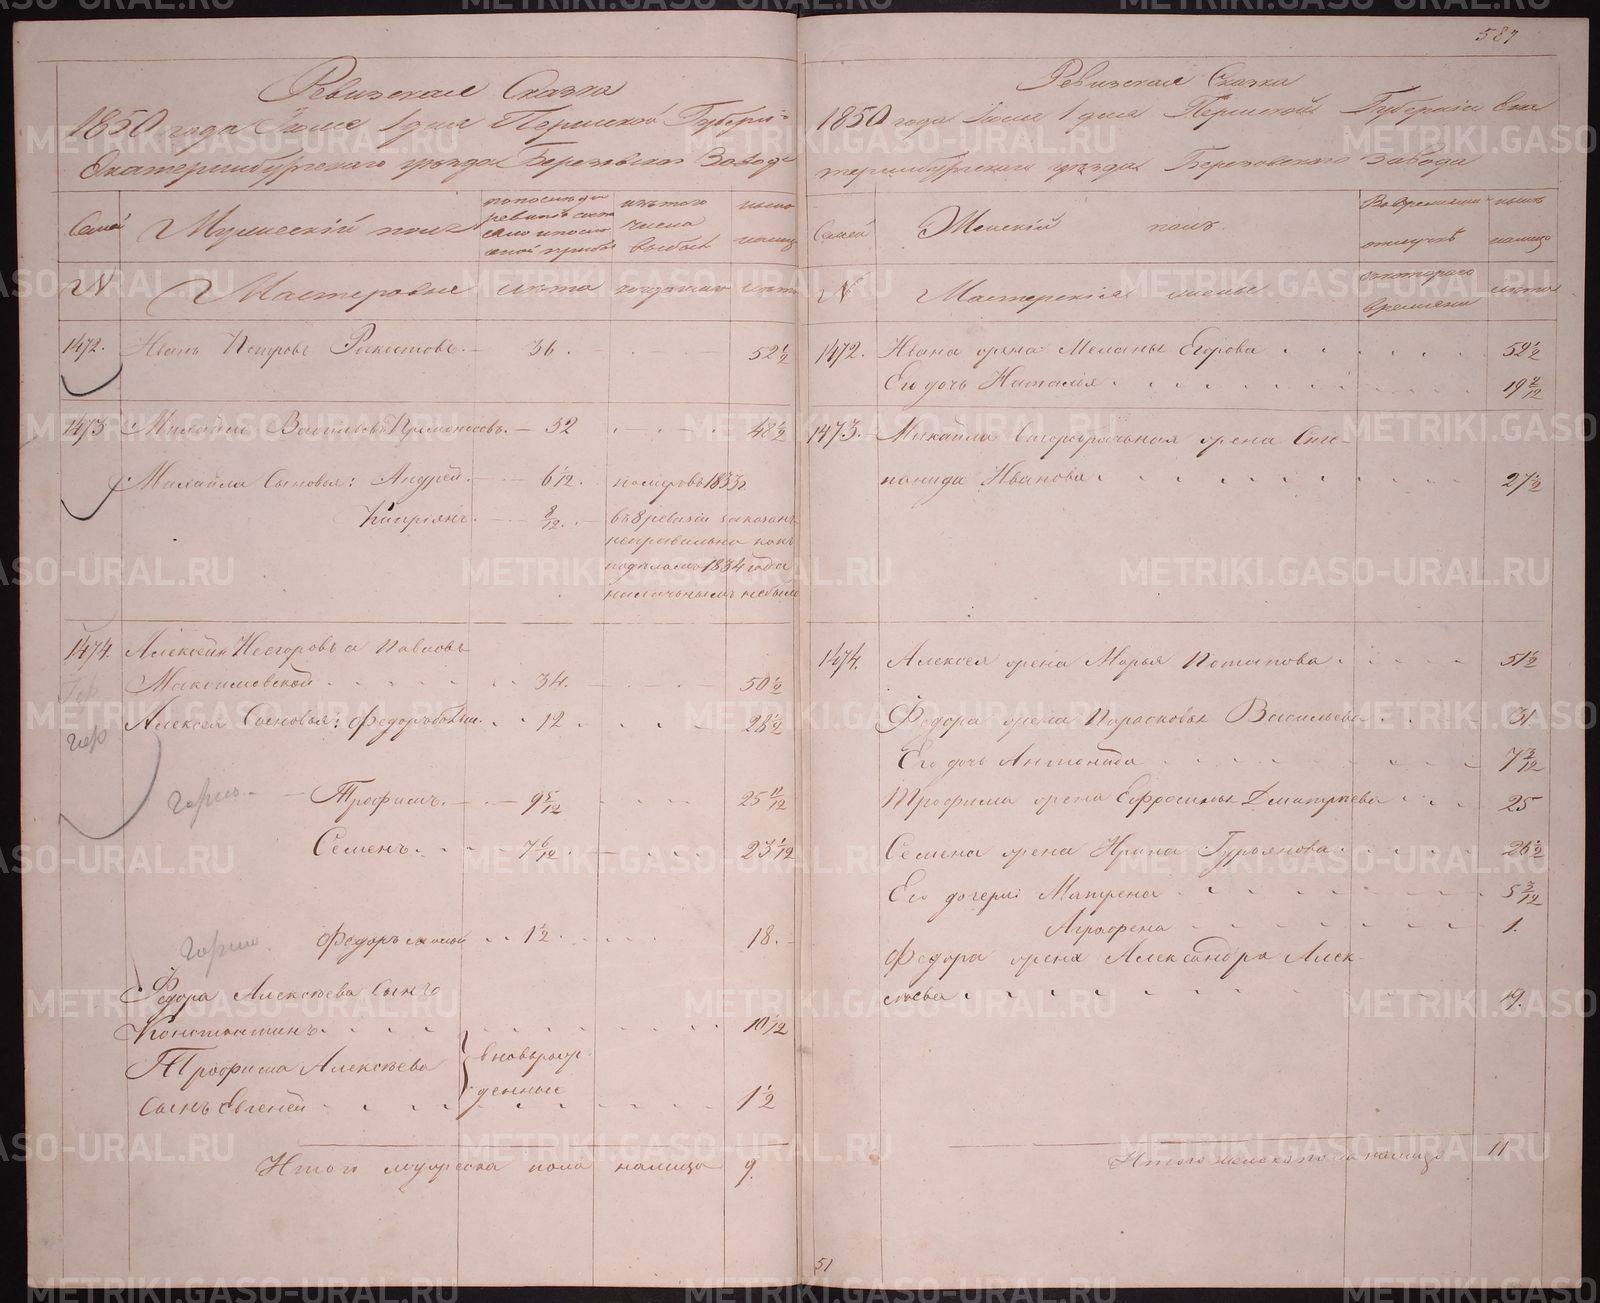 587
Ревизская Сказка
1850 года Июня 1 дня Пермской Губерніи
Екатеринбургскаго уѣзда Березовскаго Завода
Семей
Мужескій полъ
по последней
ревизіи состояло и после
оной прибыло
изъ того
числа
выбыло
ныне
налицо
№
Мастеровые
лѣта
когда именно
лѣта
1472. Иванъ Петровъ 36. 52 1/2
1473 Михайло Васильевъ 32 48 1/2
Михайла Сыновья: Андрей 6 1/2. помѣръ въ 1833.
Кипріянъ 8/12. въ 8 ревизіи показанъ
неправильно какъ
1834 года
наличнымъ не былъ
1474. Алексѣй Несторовъ а Павловъ
Максимовской 34. 50 1/2
Алексея Сыновья: Федоръ большій 12 28 1/2
Трофимъ 9 5/12 25 11/12
Семенъ 7 6/12 23 1/12
Федоръ меньшой 1 1/2 18.
Федора Алексѣева сынъ
Константинъ 10 1/12
Трофима Алексѣева
сынъ Евгеній
вновь рожденные
1 1/2
Итого мужеска пола налицо 9.
Ревизская Сказка
1850 года Июня 1 дня Пермской Губерніи Ека
теринбургскаго уѣзда Березовскаго завода
Семей
Женскій полъ.
Во временной
отлучкѣ
нынѣ
налицо
№
Мастерскія жены
съ котораго
времени
лѣта
1472. Ивана жена Меланья Егорова 52 1/2
Его дочь Наталія 19 2/12
1473. Михайла второбрачная жена Сте-
панида Иванова 27 1/2
1474. Алексея жена Марья Потапова 51 1/2
Федора жена Парасковья Васильева 31
Его дочь Антонида 7 3/12
Трофима жена Ефросинья Дмитріева 25
Семена жена Ирина Гурьянова 26 1/2
Его дочери: Матрена 5 3/12
Аграфена 1.
Федора жена Александра Алек-
сѣева 19.
Итого женска пола налицо 11
51
METRIKI.GASO-URAL.RU